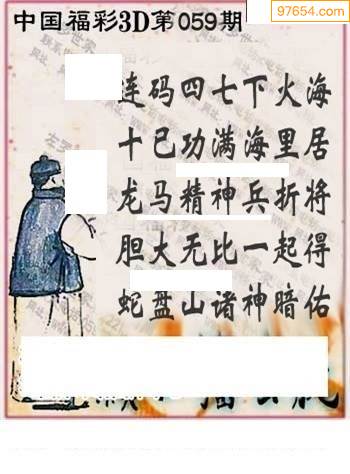 97654.com
中国福彩3D第059期
连码四七下火海
十已功满海里居
龙马精神兵折将
胆大无比一起得
蛇盘山诸神暗佑